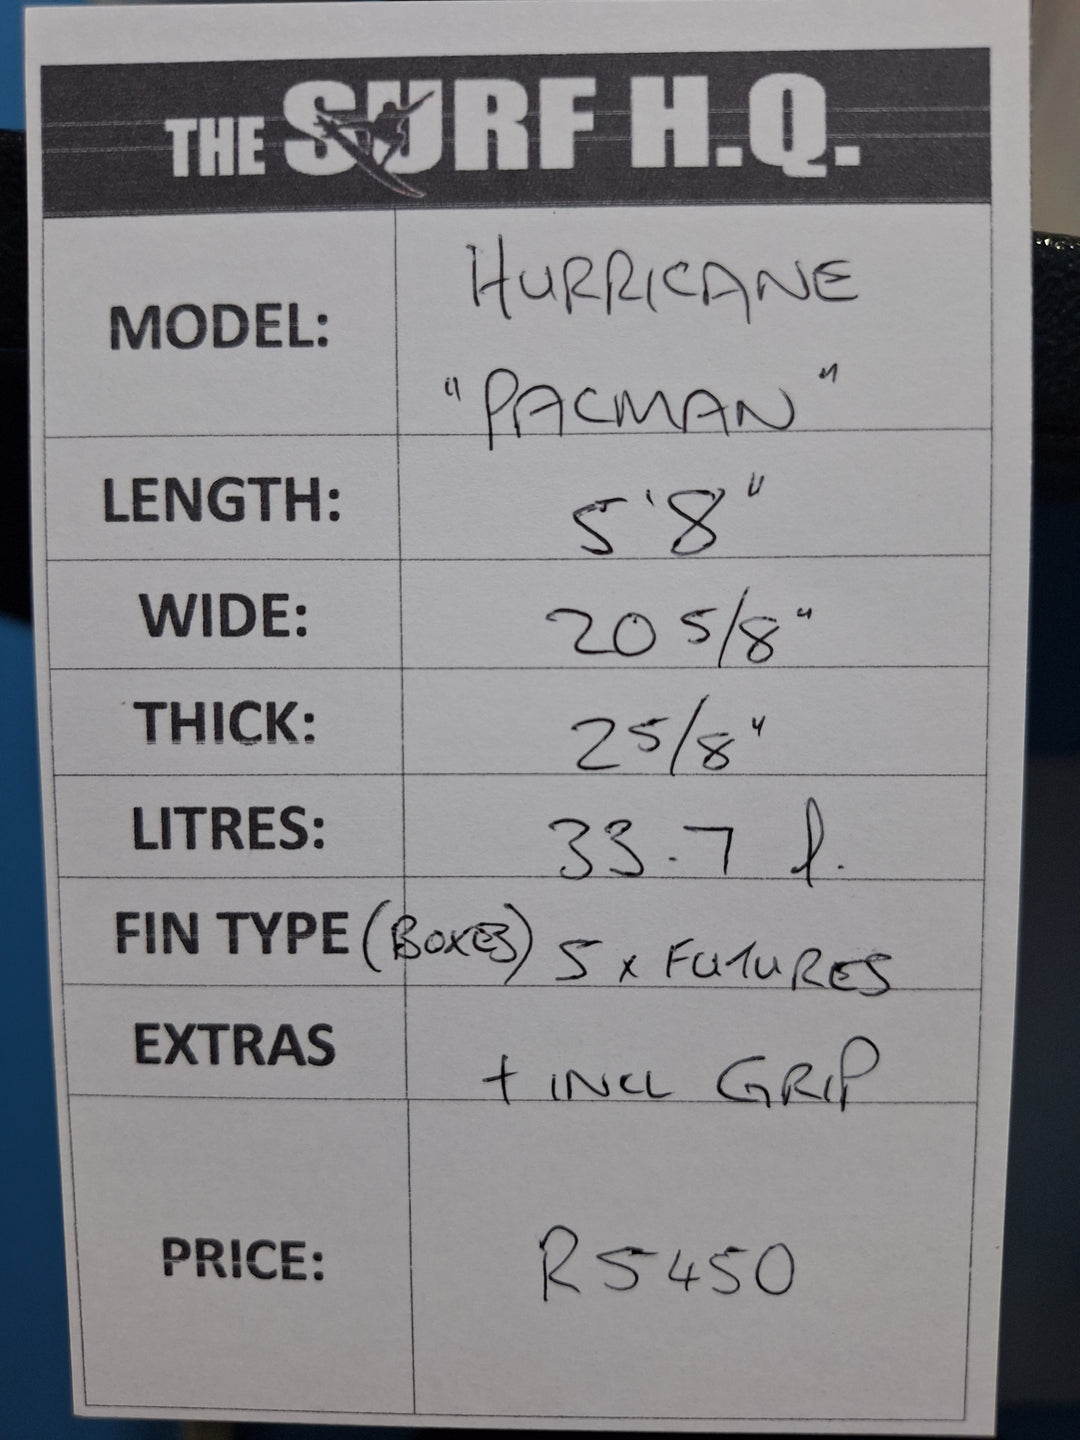 THE SURF H.Q.
MODEL: HURRICANE
"PACMAN"
LENGTH: 5'8"
WIDE: 20 5/8"
THICK: 2 5/8"
LITRES: 33.7 l.
FIN TYPE (BOXES) 5 x FUTURES
EXTRAS + INCL GRIP
PRICE: R5450